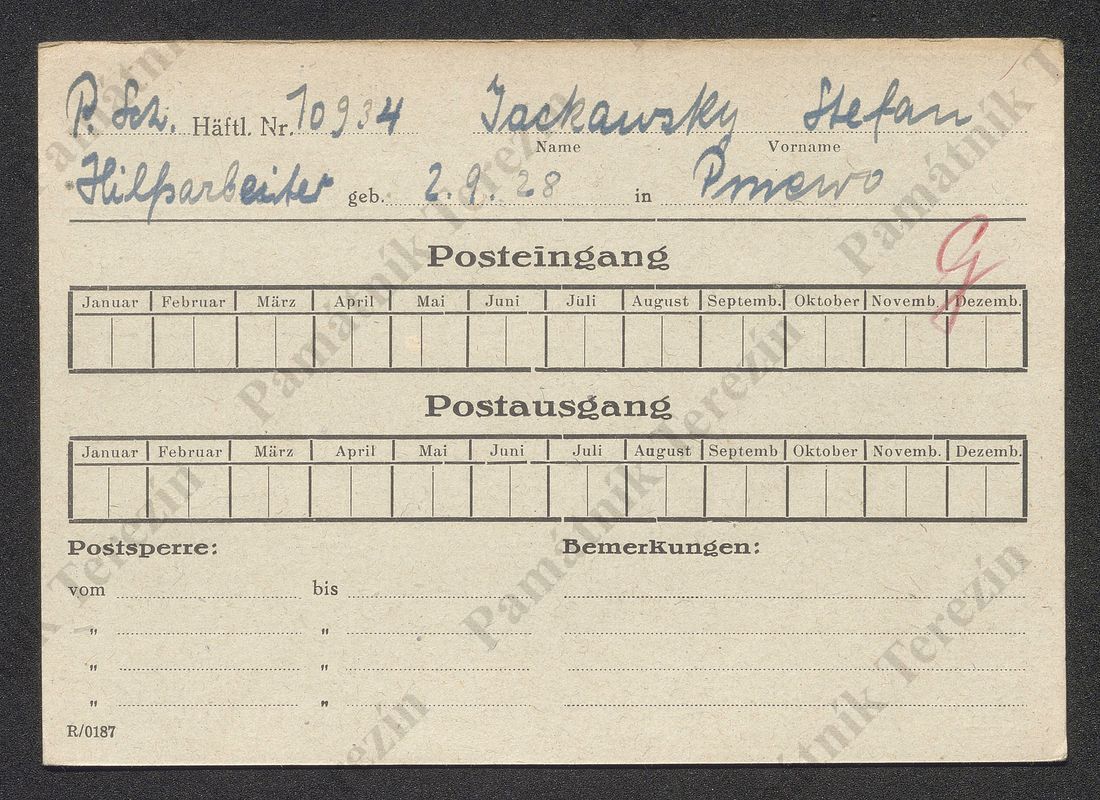 P. Sch. Häftl. Nr. 10934 Jackawsky Stefan
Name Vorname
Hilfsarbeiter geb. 2.9.28 in Pniewo
Posteingang
Januar Februar März April Mai Juni Juli August Septemb. Oktober Novemb. Dezemb.
G
Postausgang
Januar Februar März April Mai Juni Juli August Septemb Oktober Novemb. Dezemb.
Postsperre: Bemerkungen:
vom bis
„ „
„ „
„ „
R/0187
Památník Terezín